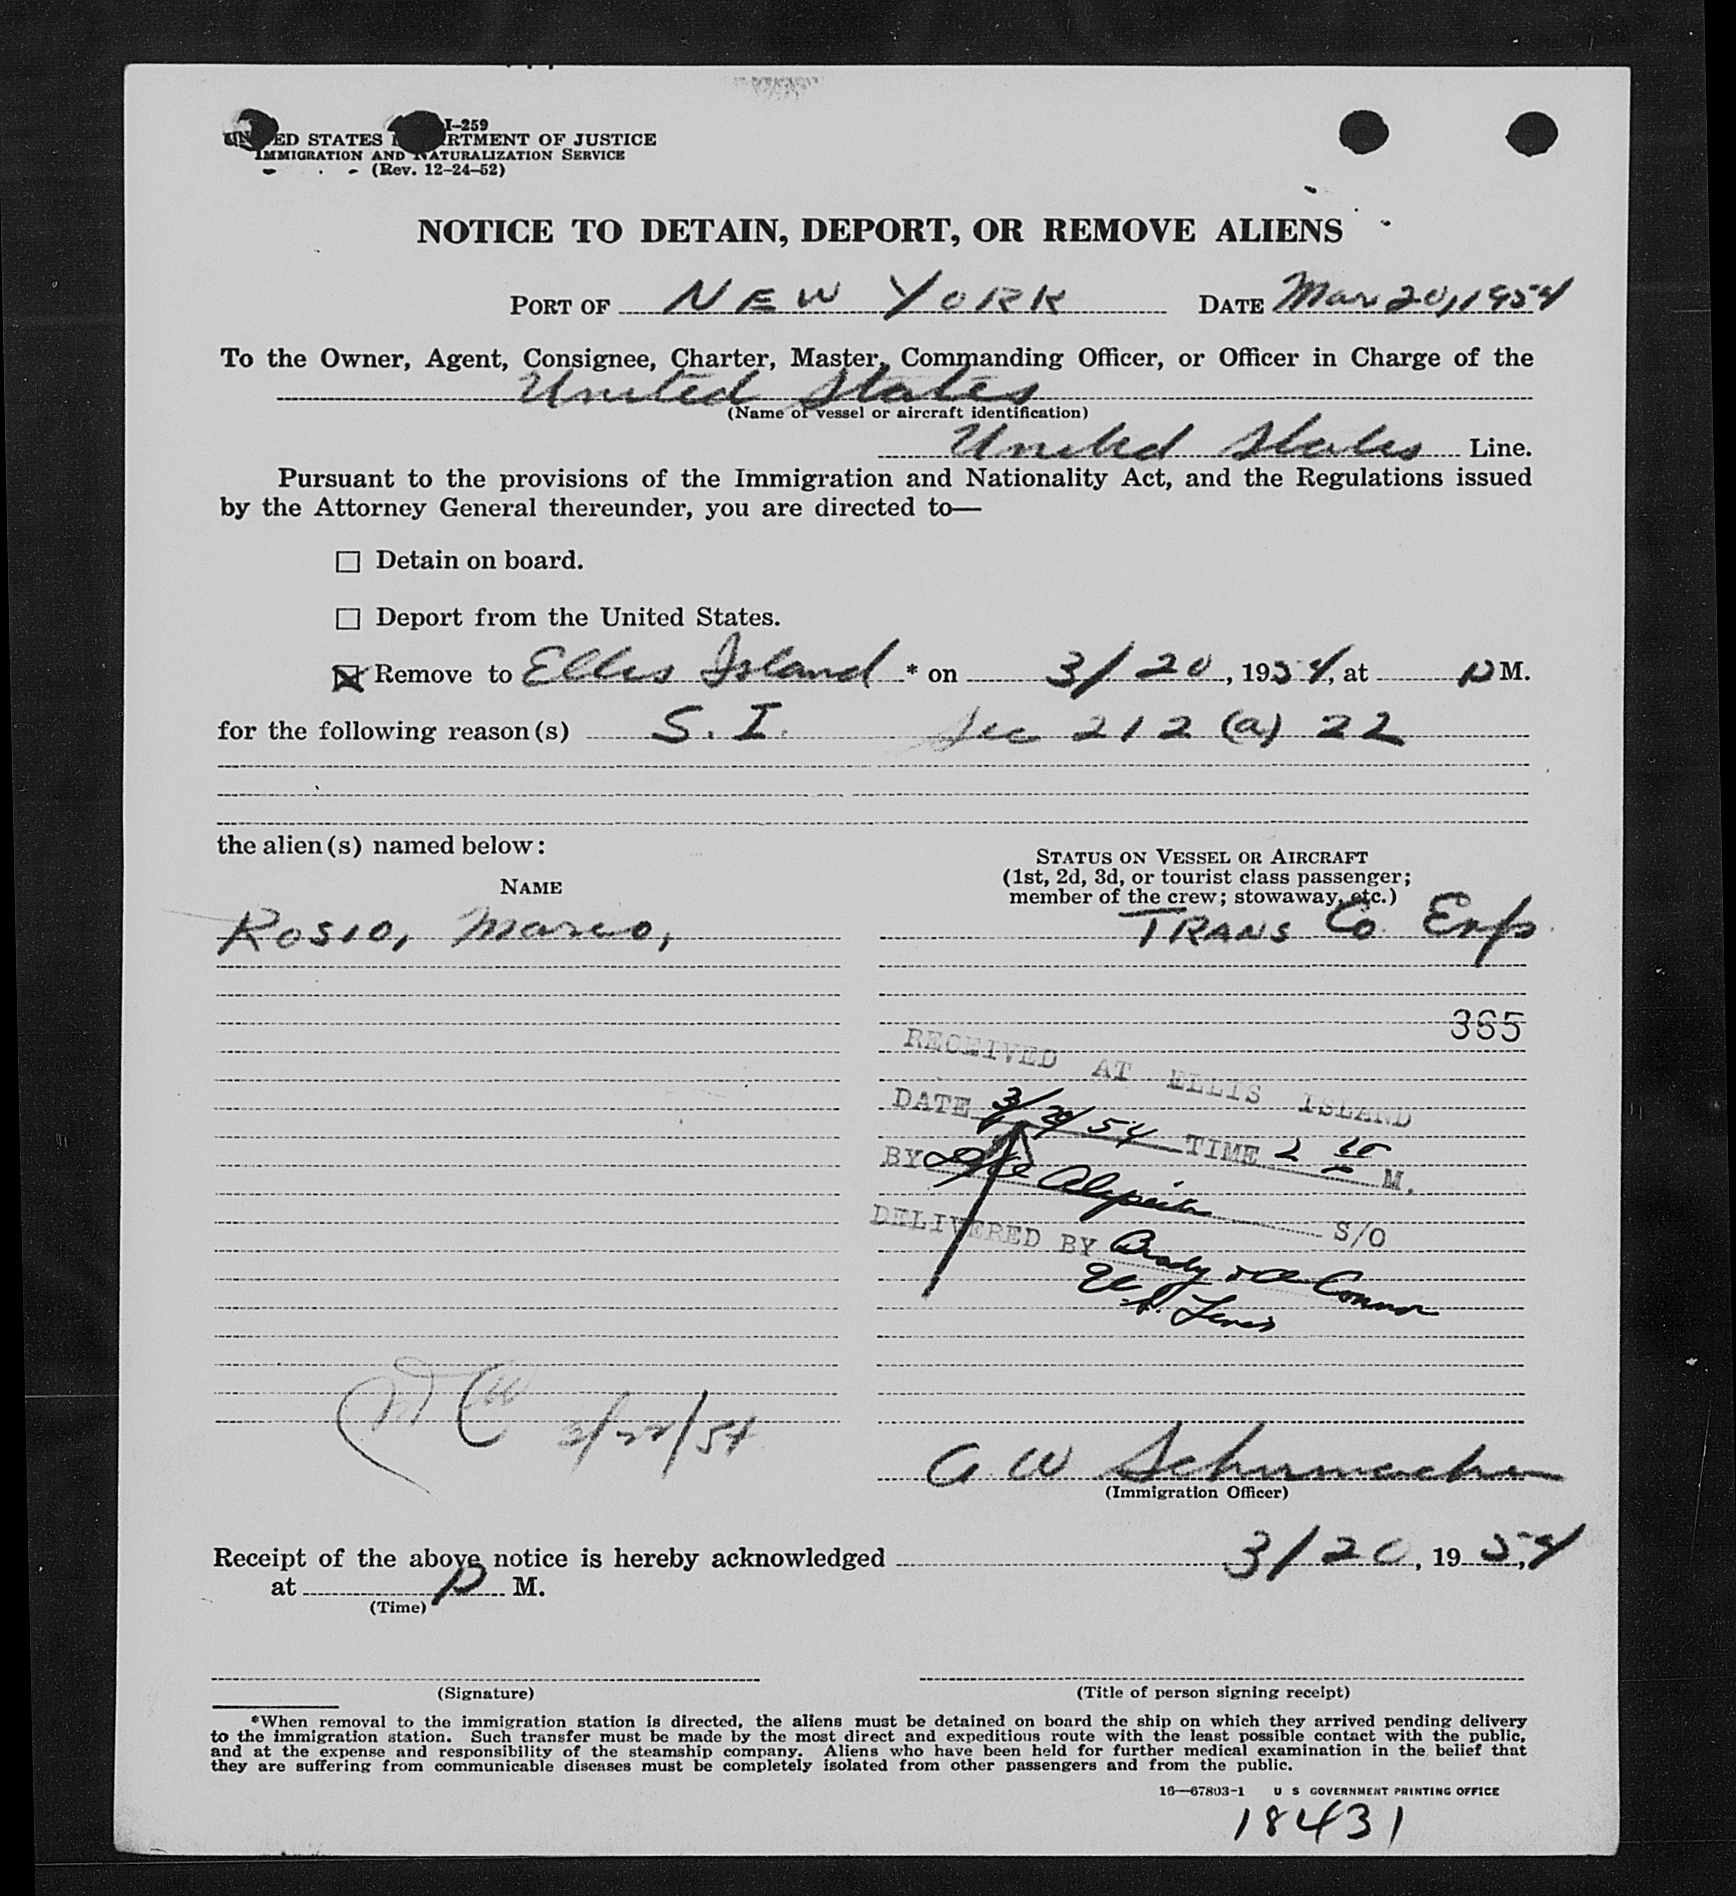 I-259
UNITED STATES DEPARTMENT OF JUSTICE
IMMIGRATION AND NATURALIZATION SERVICE
(Rev. 12-24-52)
NOTICE TO DETAIN, DEPORT, OR REMOVE ALIENS
PORT OF NEW YORK DATE Mar 20, 1954
To the Owner, Agent, Consignee, Charter, Master, Commanding Officer, or Officer in Charge of the
United States
(Name of vessel or aircraft identification)
United States Line.
Pursuant to the provisions of the Immigration and Nationality Act, and the Regulations issued
by the Attorney General thereunder, you are directed to—
Detain on board.
Deport from the United States.
Remove to Ellis Island * on 3/20, 1954, at P M.
for the following reason(s) S. I. Sec 212 (a) 22
the alien(s) named below:
NAME
STATUS ON VESSEL OR AIRCRAFT
(1st, 2d, 3d, or tourist class passenger;
member of the crew; stowaway, etc.)
Rosio, Marco, TRANS Co Exp
365
RECEIVED AT ELLIS ISLAND
DATE 3/20/54 TIME 2 M.
BY S/O
DELIVERED BY Brady & O Connor
U.S. Lines
3/22/54
A W Schumacher
(Immigration Officer)
Receipt of the above notice is hereby acknowledged 3/20, 1954
at P M.
(Time)
(Signature) (Title of person signing receipt)
*When removal to the immigration station is directed, the aliens must be detained on board the ship on which they arrived pending delivery
to the immigration station. Such transfer must be made by the most direct and expeditious route with the least possible contact with the public,
and at the expense and responsibility of the steamship company. Aliens who have been held for further medical examination in the belief that
they are suffering from communicable diseases must be completely isolated from other passengers and from the public.
16—67803-1 U S GOVERNMENT PRINTING OFFICE
18431